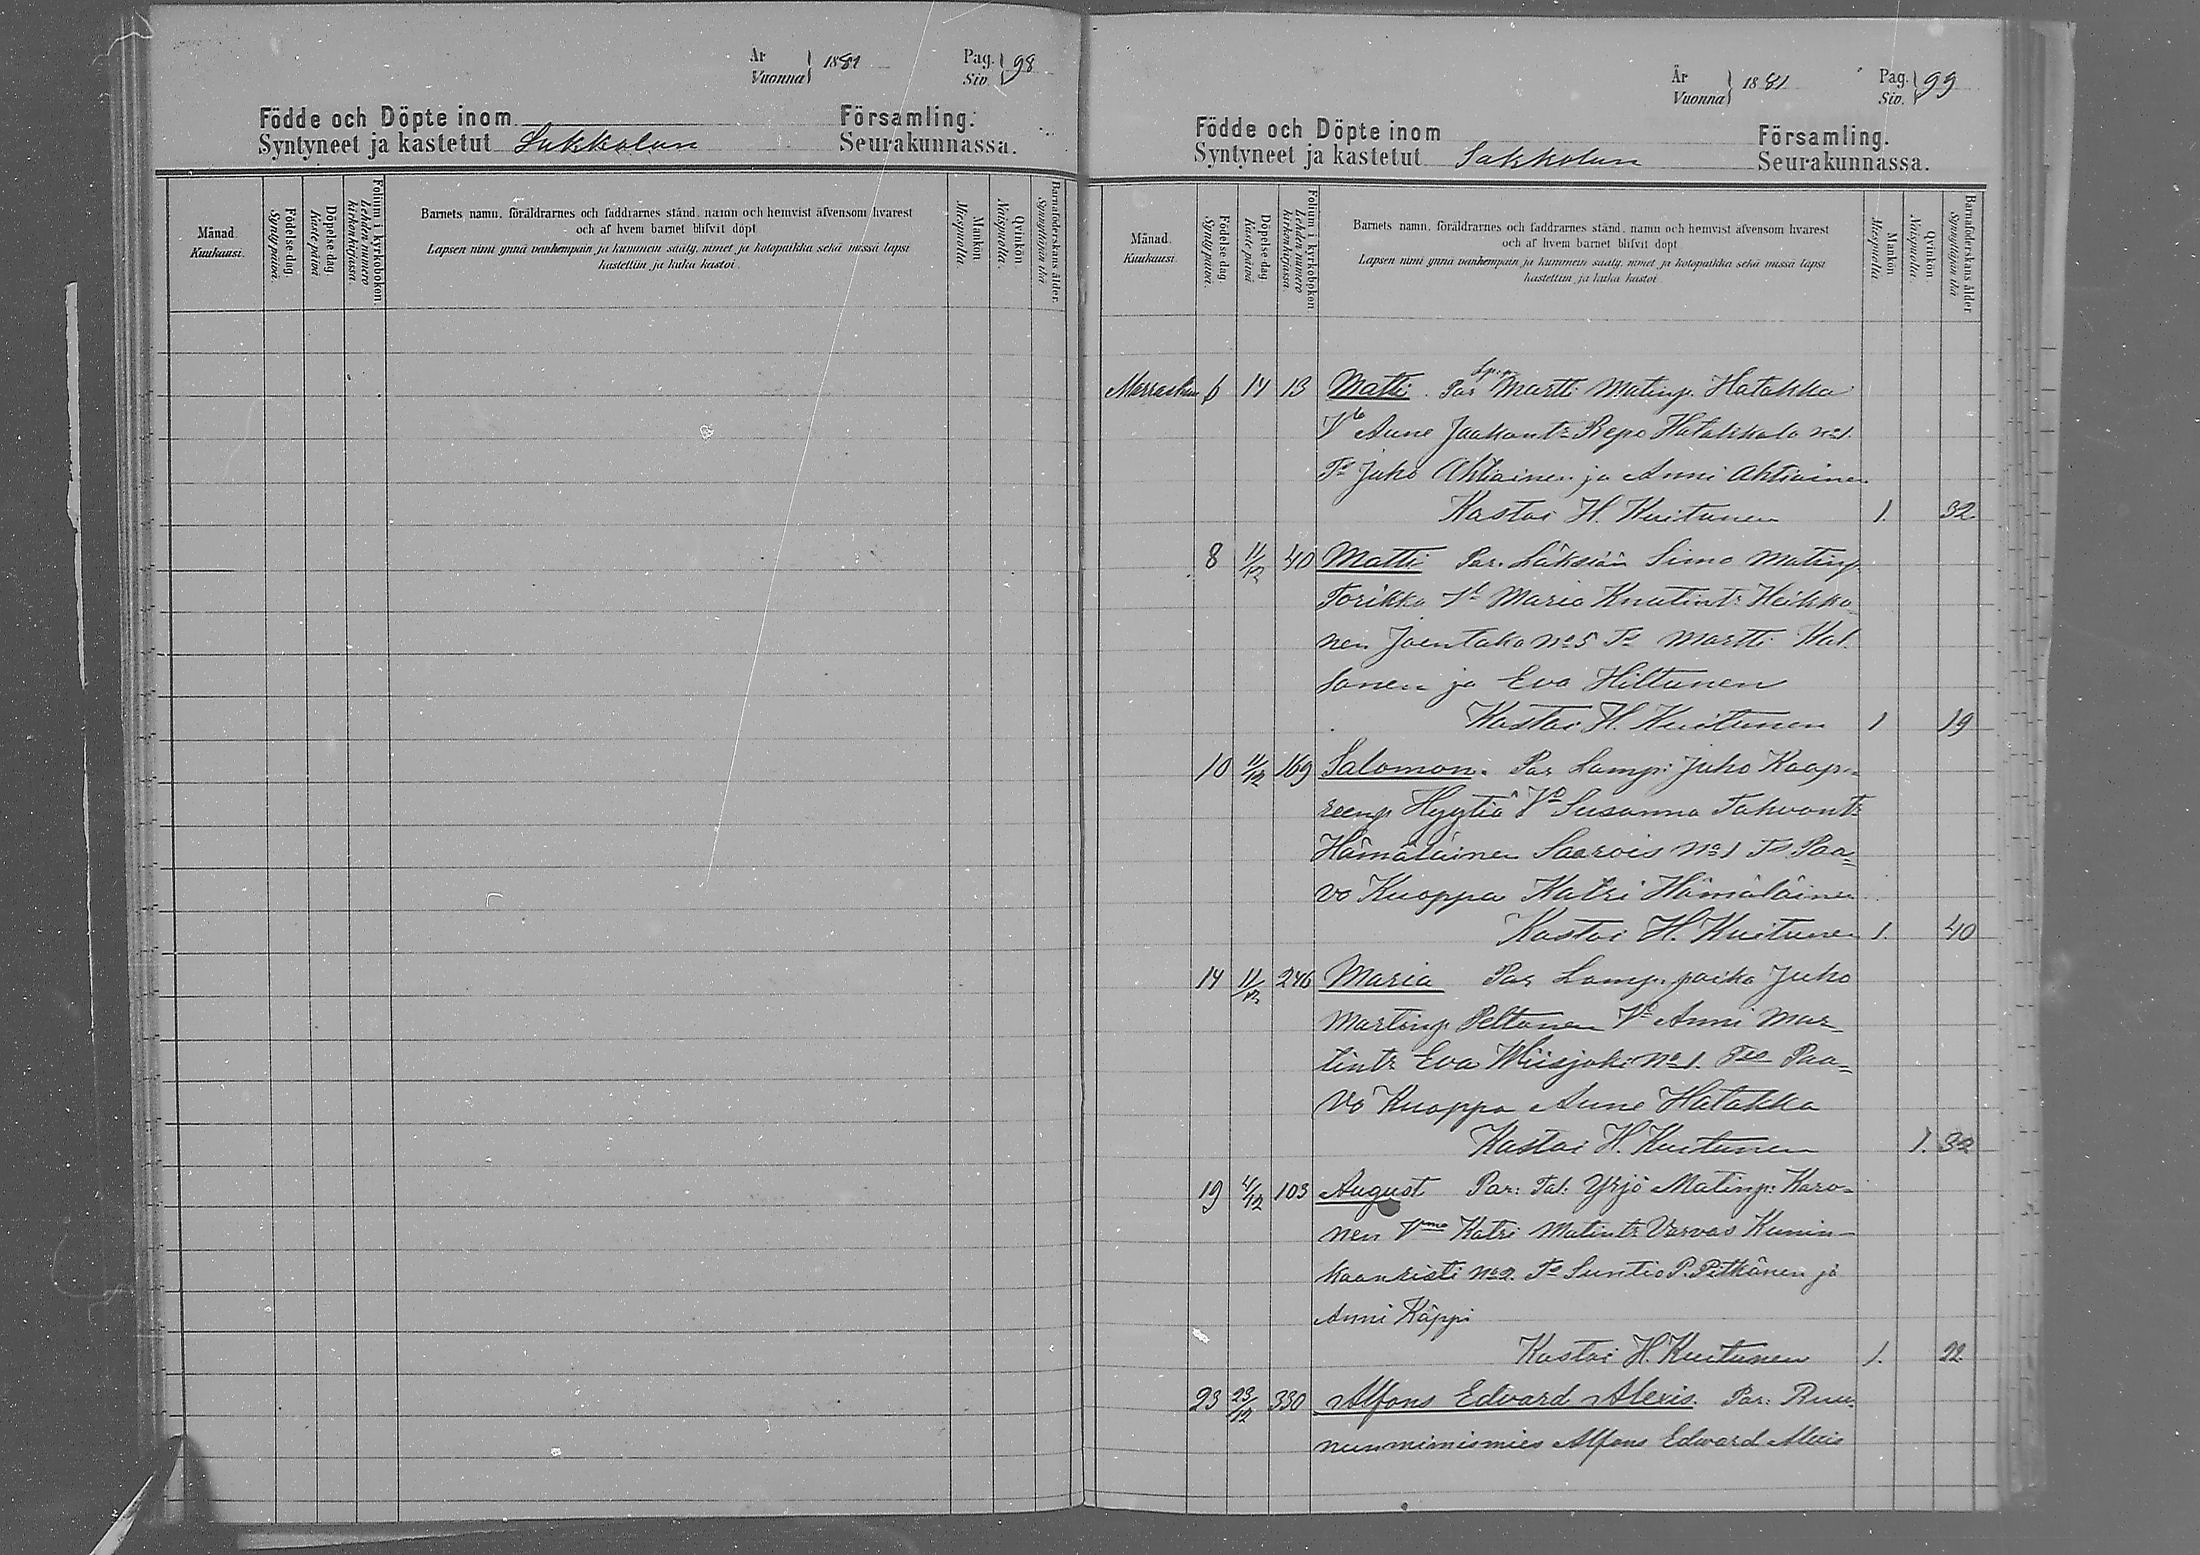 År
Vuonna } 1881 Pag.
Siv. } 98
Födde och Döpte inom Församling.
Syntyneet ja kastetut Sakkolan Seurakunnassa.
Månad.
Kuukausi.
Födelse dag.
Syntypäivä.
Döpelse dag.
Kastepäivä
Folium i kyrkoboken.
Lehden numero
kirkonkirjassa.
Barnets namn, föräldrarnes och faddrarnes stånd, namn och hemvist äfvensom hvarest
och af hvem barnet blifvit döpt.
Lapsen nimi ynnä vanhempain ja kummein sääty, nimet ja kotopaikka sekä missä lapsi
kastettiin ja kuka kastoi.
Mankön
Miespuolia.
Qvinkön
Naispuolia.
Barnaföderskans ålder.
Synnyttäjän ikä
År
Vuonna } 1881 Pag.
Siv. } 99
Födde och Döpte inom Församling.
Syntyneet ja kastetut Sakkolan Seurakunnassa.
Månad.
Kuukausi.
Födelse dag.
Syntypäivä.
Döpelse dag.
Kastepäivä
Folium i kyrkoboken.
Lehden numero
kirkonkirjassa.
Barnets namn, föräldrarnes och faddrarnes stånd, namn och hemvist äfvensom hvarest
och af hvem barnet blifvit döpt.
Lapsen nimi ynnä vanhempain ja kummein sääty, nimet ja kotopaikka sekä missä lapsi
kastettiin ja kuka kastoi.
Mankön
Miespuolia.
Qvinkön
Naispuolia.
Barnaföderskans ålder
Synnyttäjän ikä
6 14 13 Matti. Par Martti Matinp. Hatakka
Vo Anne Jaakontr Repo Hatakkala No 1.
Ts Juho Ahtiainen ja Anni Ahtiainen
Kastoi H. Kuitunen 1. 32
8 11/12 40 Matti Par. Läksiän Simo Matinp.
Torikka Vo Maria Knutintr Heikko
nen Joentaka No 5 Ts Martti
sonen ja Eva Hiltunen
Kastoi H. Kuitunen 1 19
10 11/12 169 Salomon. Par Lamp: Juho Kaap=
reenp. Hyytiä Vo Susanna Tahvontr
Hämäläinen Saarois No 1 Ts Paa=
vo Kuoppa Katri Hämäläinen
Kastoi H. Kuitunen 1. 40
14 11/12 246 Maria Par Lamp. poika Juho
Martinp. Peltonen Vo Anni Mar
tintr Eva Wiisjoki No 1. Ts Paa=
vo Kuoppa Anne Hatakka
Kastoi H. Kuitunen 1. 32
19 4/12 103 August Par: Tal: Yrjö Matinp: Karo=
nen Vmo Katri Matintr Varvas Kunin=
kaanristi No 2. Ts Suntio P. Pitkänen ja
Anni Käppi
Kastoi H. Kuitunen 1. 22
23 23/12 330 Alfons Edvard Alexis. Par: Ruu=
nunnimismies Alfons Edward Alexis